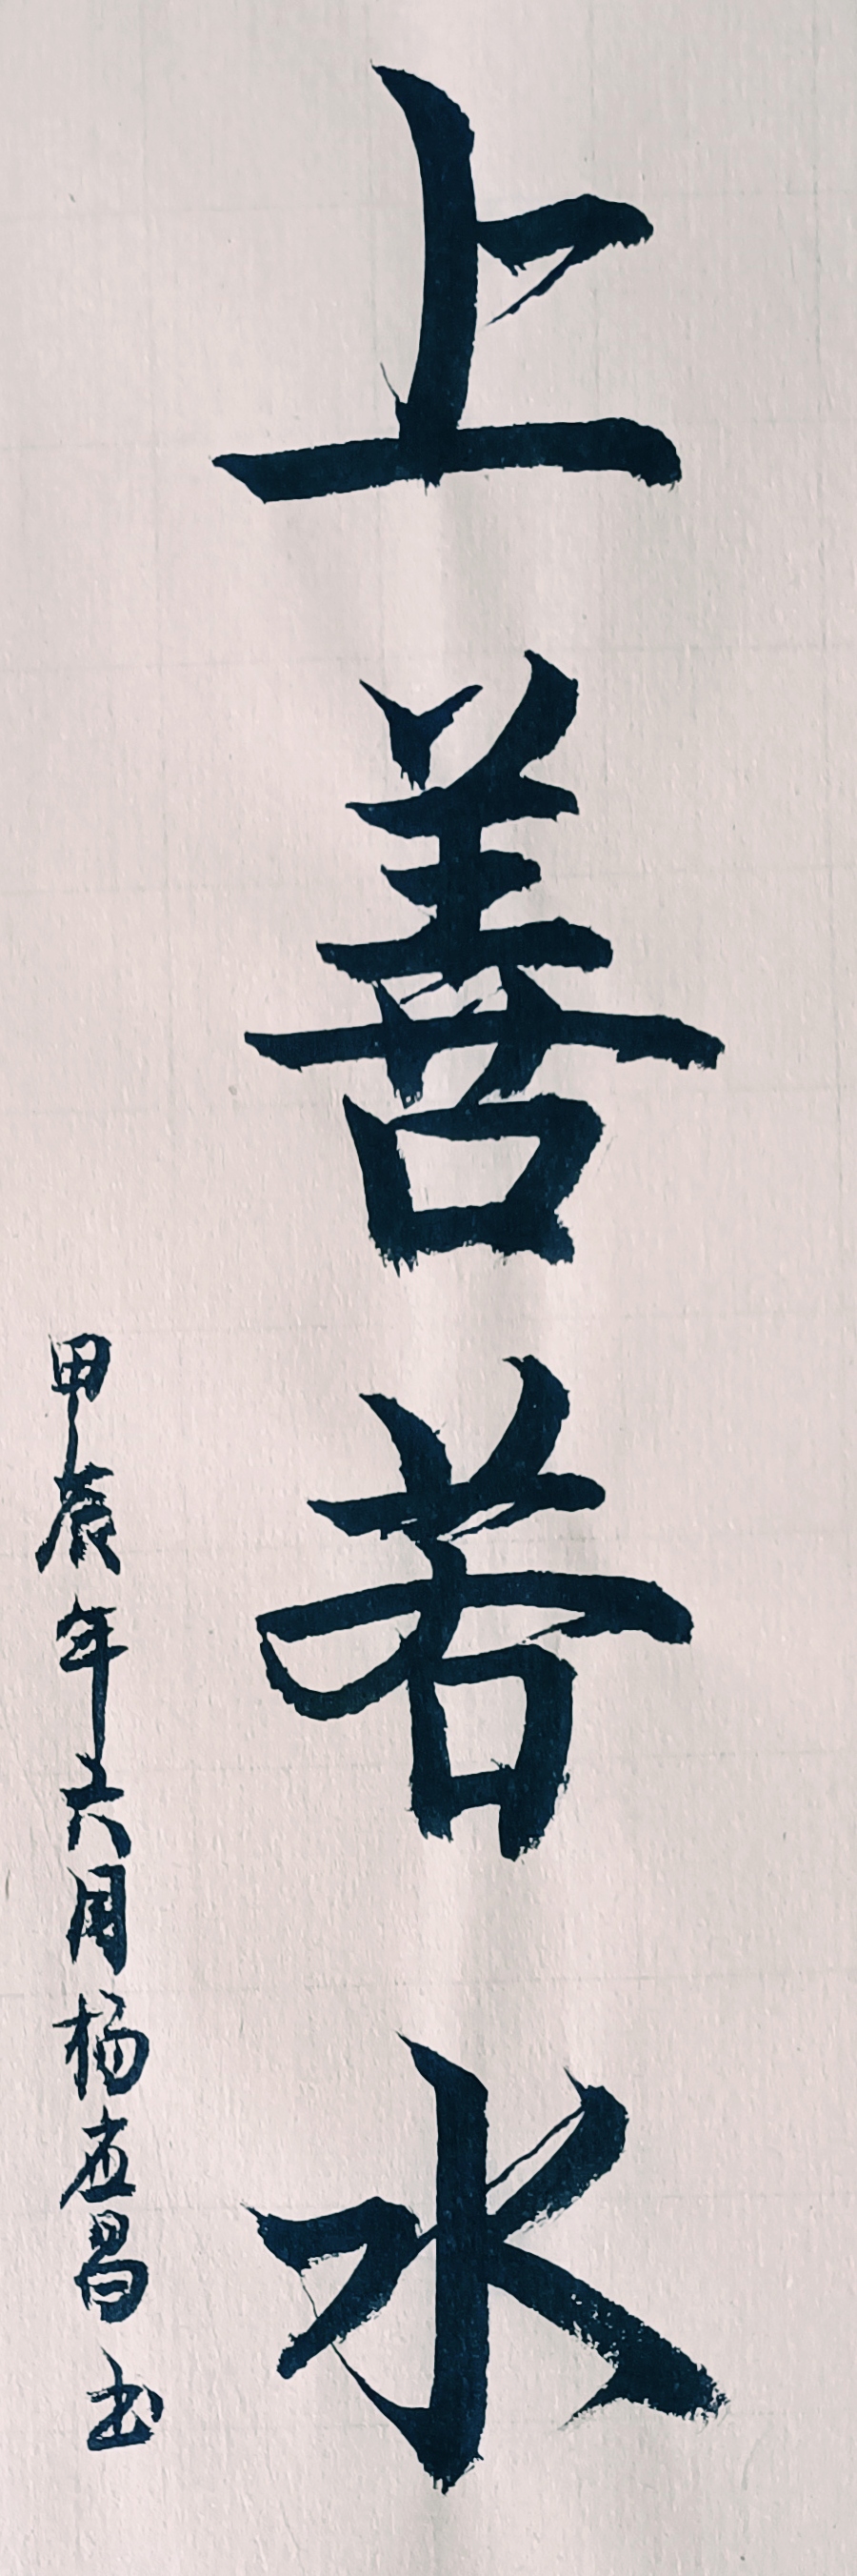 上善若水
甲辰年六月杨益昌书